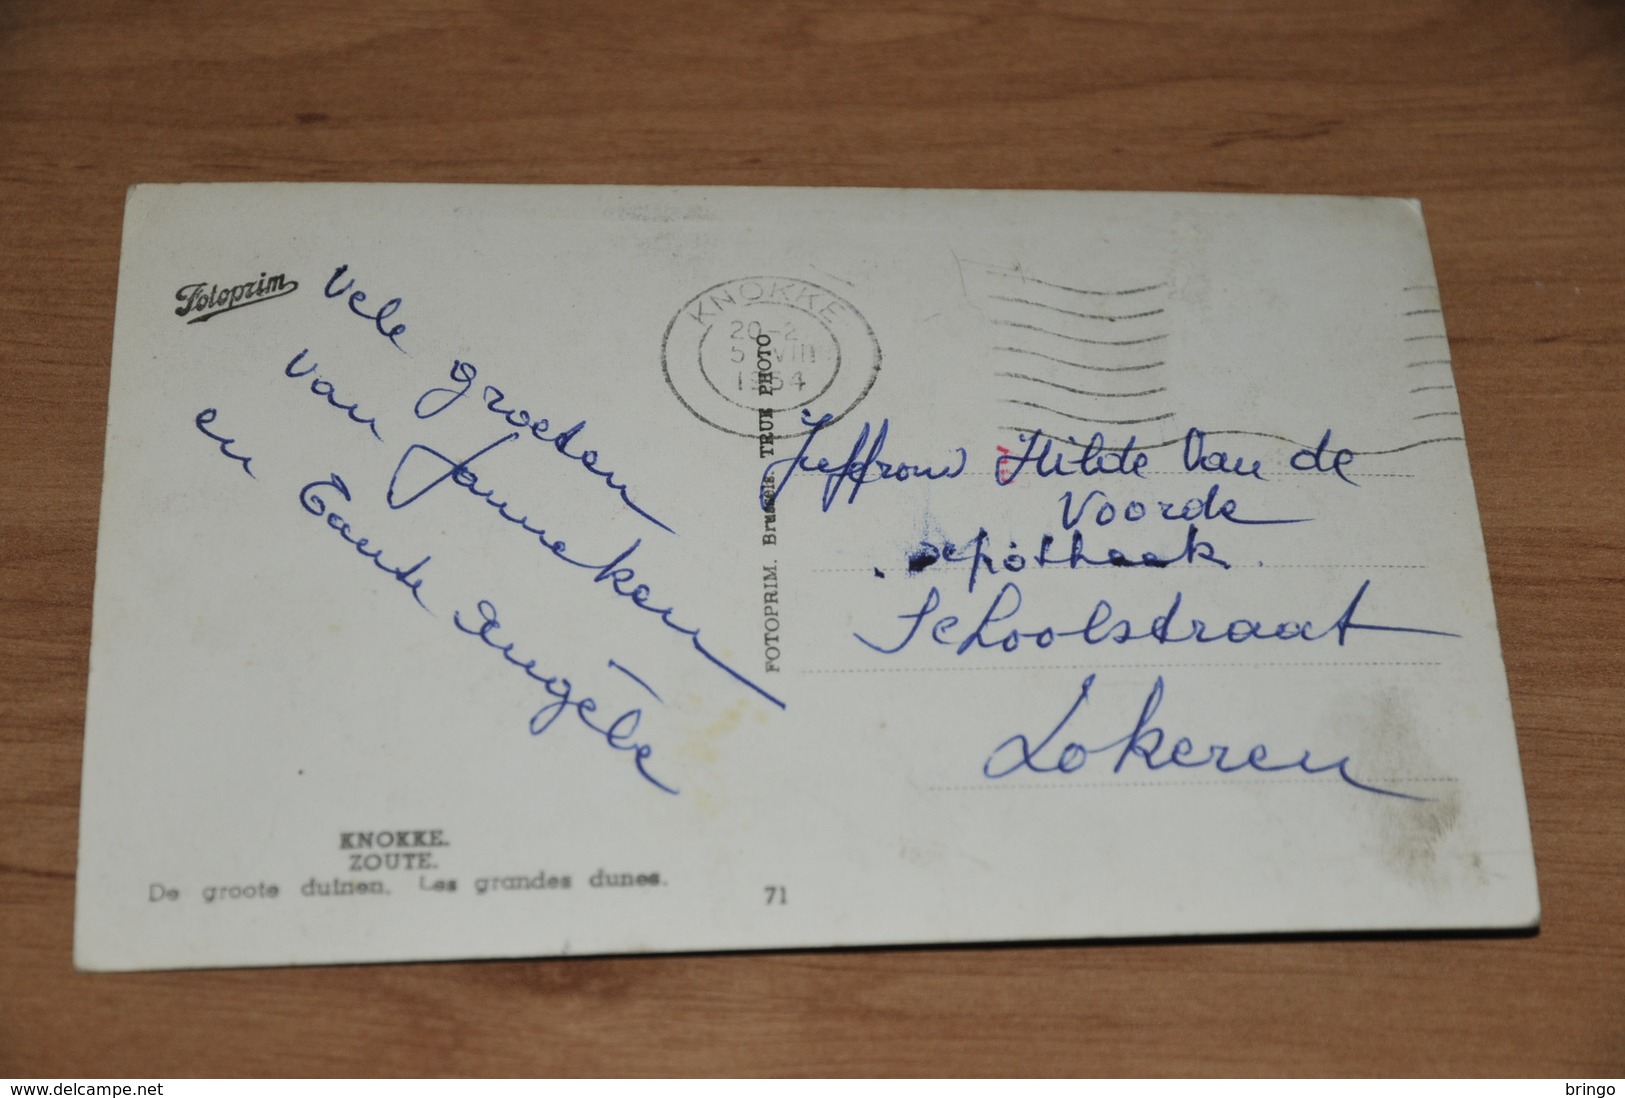 Fotoprim
Vele groeten
van Janneken
en Tante Angèle
KNOKKE
20-2
5 VIII
1964
FOTOPRIM. Brussels TRUE PHOTO
Juffrouw Hilde Van de
Voorde
apotheek
Schoolstraat
Lokeren
KNOKKE.
ZOUTE.
De groote duinen. Les grandes dunes.
71
www.delcampe.net
bringo